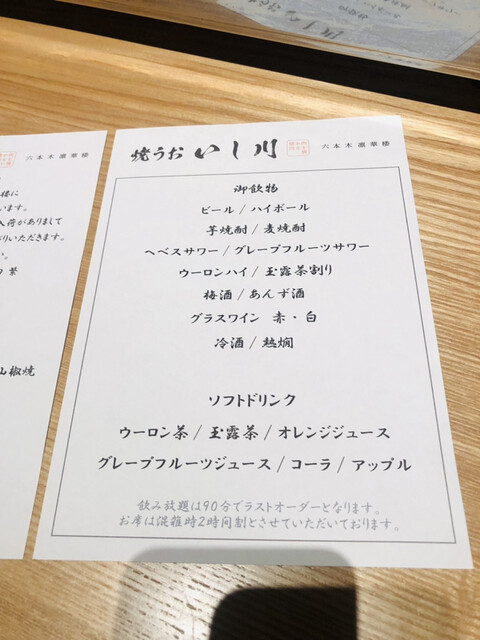 焼うお いし川 六本木 蓮華楼
御飲物
ビール / ハイボール
芋焼酎 / 麦焼酎
ヘベスサワー / グレープフルーツサワー
ウーロンハイ / 玉露茶割り
梅酒 / あんず酒
グラスワイン 赤・白
冷酒 / 熱燗
ソフトドリンク
ウーロン茶 / 玉露茶 / オレンジジュース
グレープフルーツジュース / コーラ / アップル
飲み放題は90分でラストオーダーとなります。
お席は混雑時2時間制とさせていただいております。
六本木 蓮華楼
様に
います。
入荷がありまして
りいただきます。
い。
繁
山椒焼